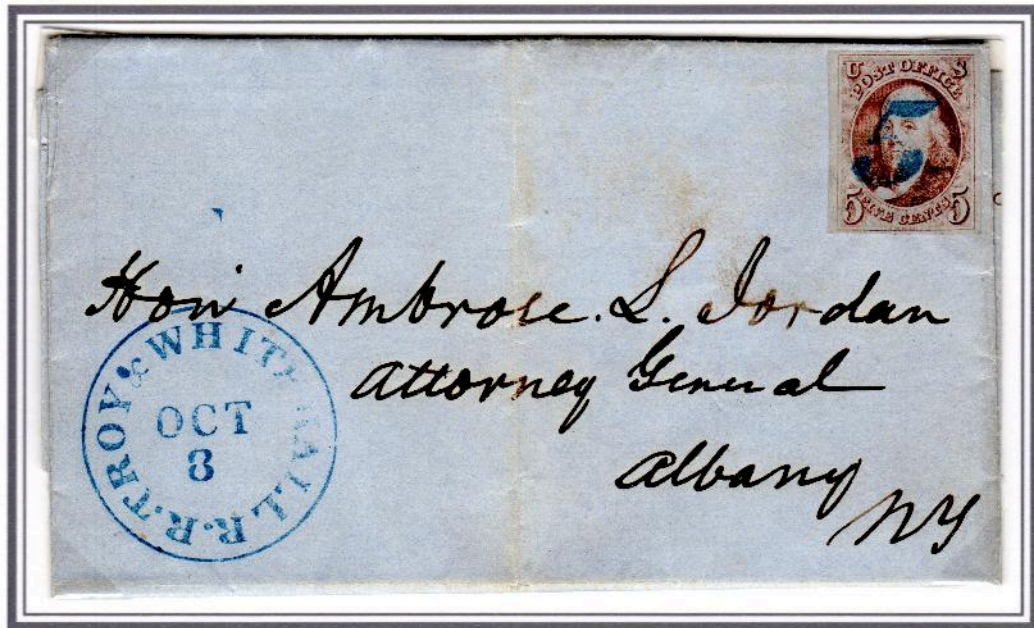 U S
POST OFFICE
5
5 FIVE CENTS 5
Hon Ambrose. L. Jordan
Attorney General
Albany
NY
TROY & WHITEHALL R.R.
OCT
8